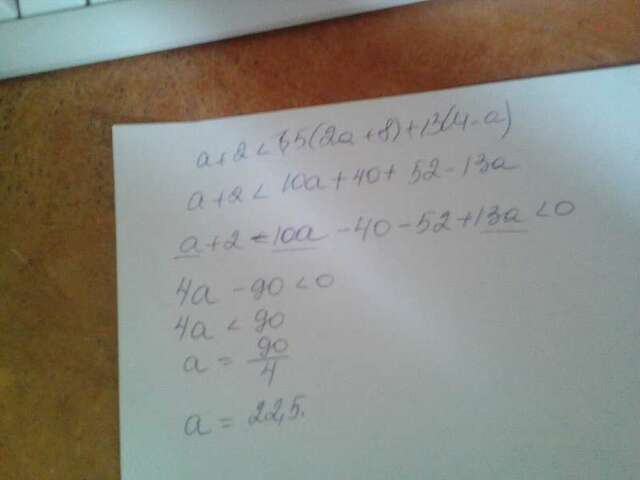 a+2 < 5(2a+8)+13(4-a)
a+2 < 10a+40+52-13a
a+2-10a-40-52+13a<0
4a-90<0
4a<90
a = 90/4
a = 22,5.